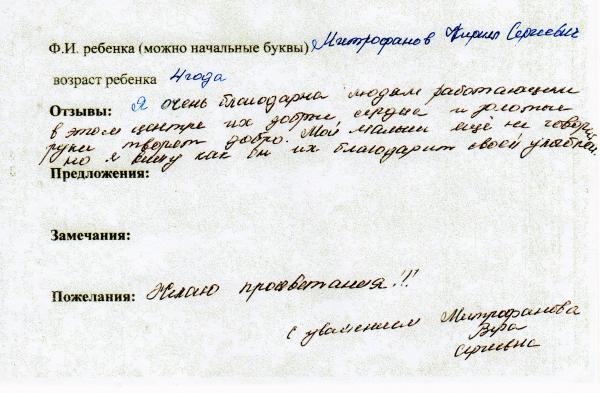 Ф.И. ребенка (можно начальные буквы) Митрофанов Кирилл Сергеевич
возраст ребенка 4 года
Отзывы: Я очень благодарна людям работающим
в этом центре их добрые сердца и золотые
руки творят добро. Мой малыш ещё не говорит,
но я вижу как он их благодарит своей улыбкой.
Предложения:
Замечания:
Пожелания: Желаю процветания!!!
с уважением Митрофанова
Вера
Сергеевна